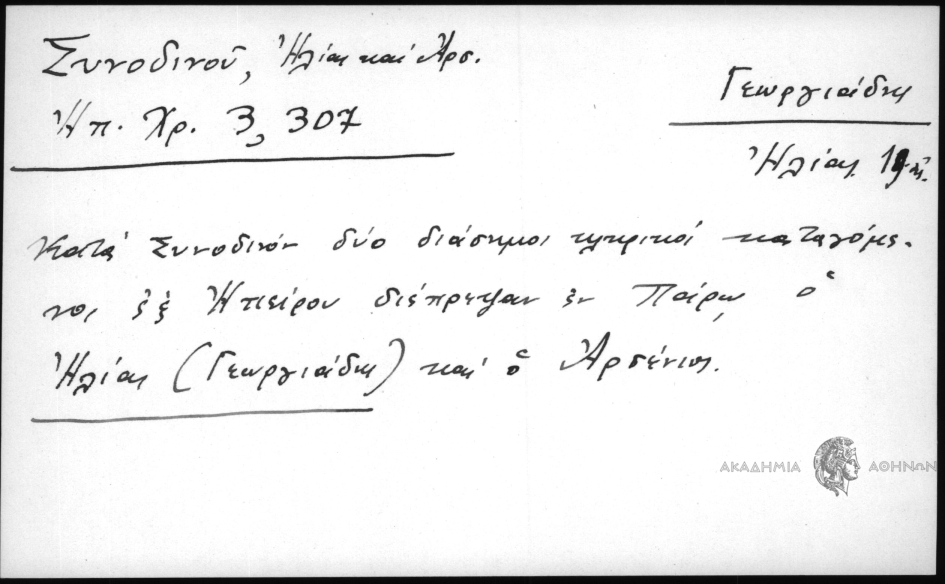 Συνοδινοῦ, Ἠλίας καὶ Ἀρσ.
Ἠπ. Χρ. 3, 307
Γεωργιάδης
Ἠλίας
Κατὰ Συνοδινὸν δύο διάσημοι κληρικοί καταγόμε-
νοι ἐξ Ἠπείρου διέπρεψαν ἐν Πάρῳ, ὁ
Ἠλίας (Γεωργιάδης) καὶ ὁ Ἀρσένιος.
ΑΚΑΔΗΜΙΑ ΑΘΗΝΩΝ